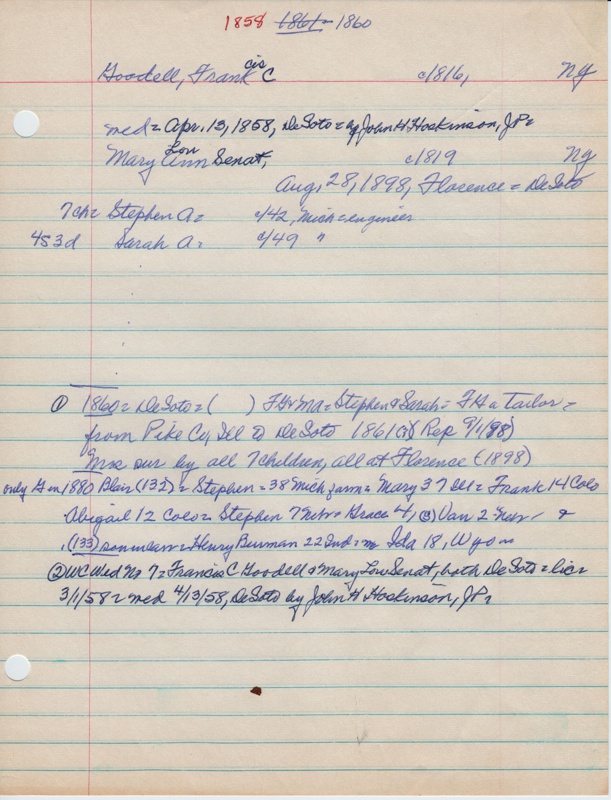 1858 1861= 1860
Goodell, Francis C c/1816, NY
med = Apr. 13, 1858, DeSoto = by John H Hoskinson, JP =
Mary Ann Lou Senat, c/1819 NY
Aug, 28, 1898, Florence = DeSoto
7ch = Stephen A = c/42, Mich = engineer
4s 3d Sarah A = c/49 "
① 1860 = DeSoto = ( ) FG & MA = Stephen & Sarah = FG a Tailor =
from Pike Co, Ill to DeSoto 1861 (?) (Rep 9/1/98)
Mrs sur by all 7 children, all at Florence (1898)
only G in 1880 Blair (132) = Stephen = 38 Mich farm = Mary 37 Ill = Frank 14 Colo
Abigail 12 Colo = Stephen 7 Nebr = Grace 4, (3) Van 2 Nebr &
(133) soninlaw = Henry Burman 22 Ind = m Ida 18, Wyo =
② WC Wed No 7 = Francis C Goodell & Mary Lou Senat, both DeSoto = lic =
3/1/58 = med 4/13/58, DeSoto by John H Hoskinson, JP =